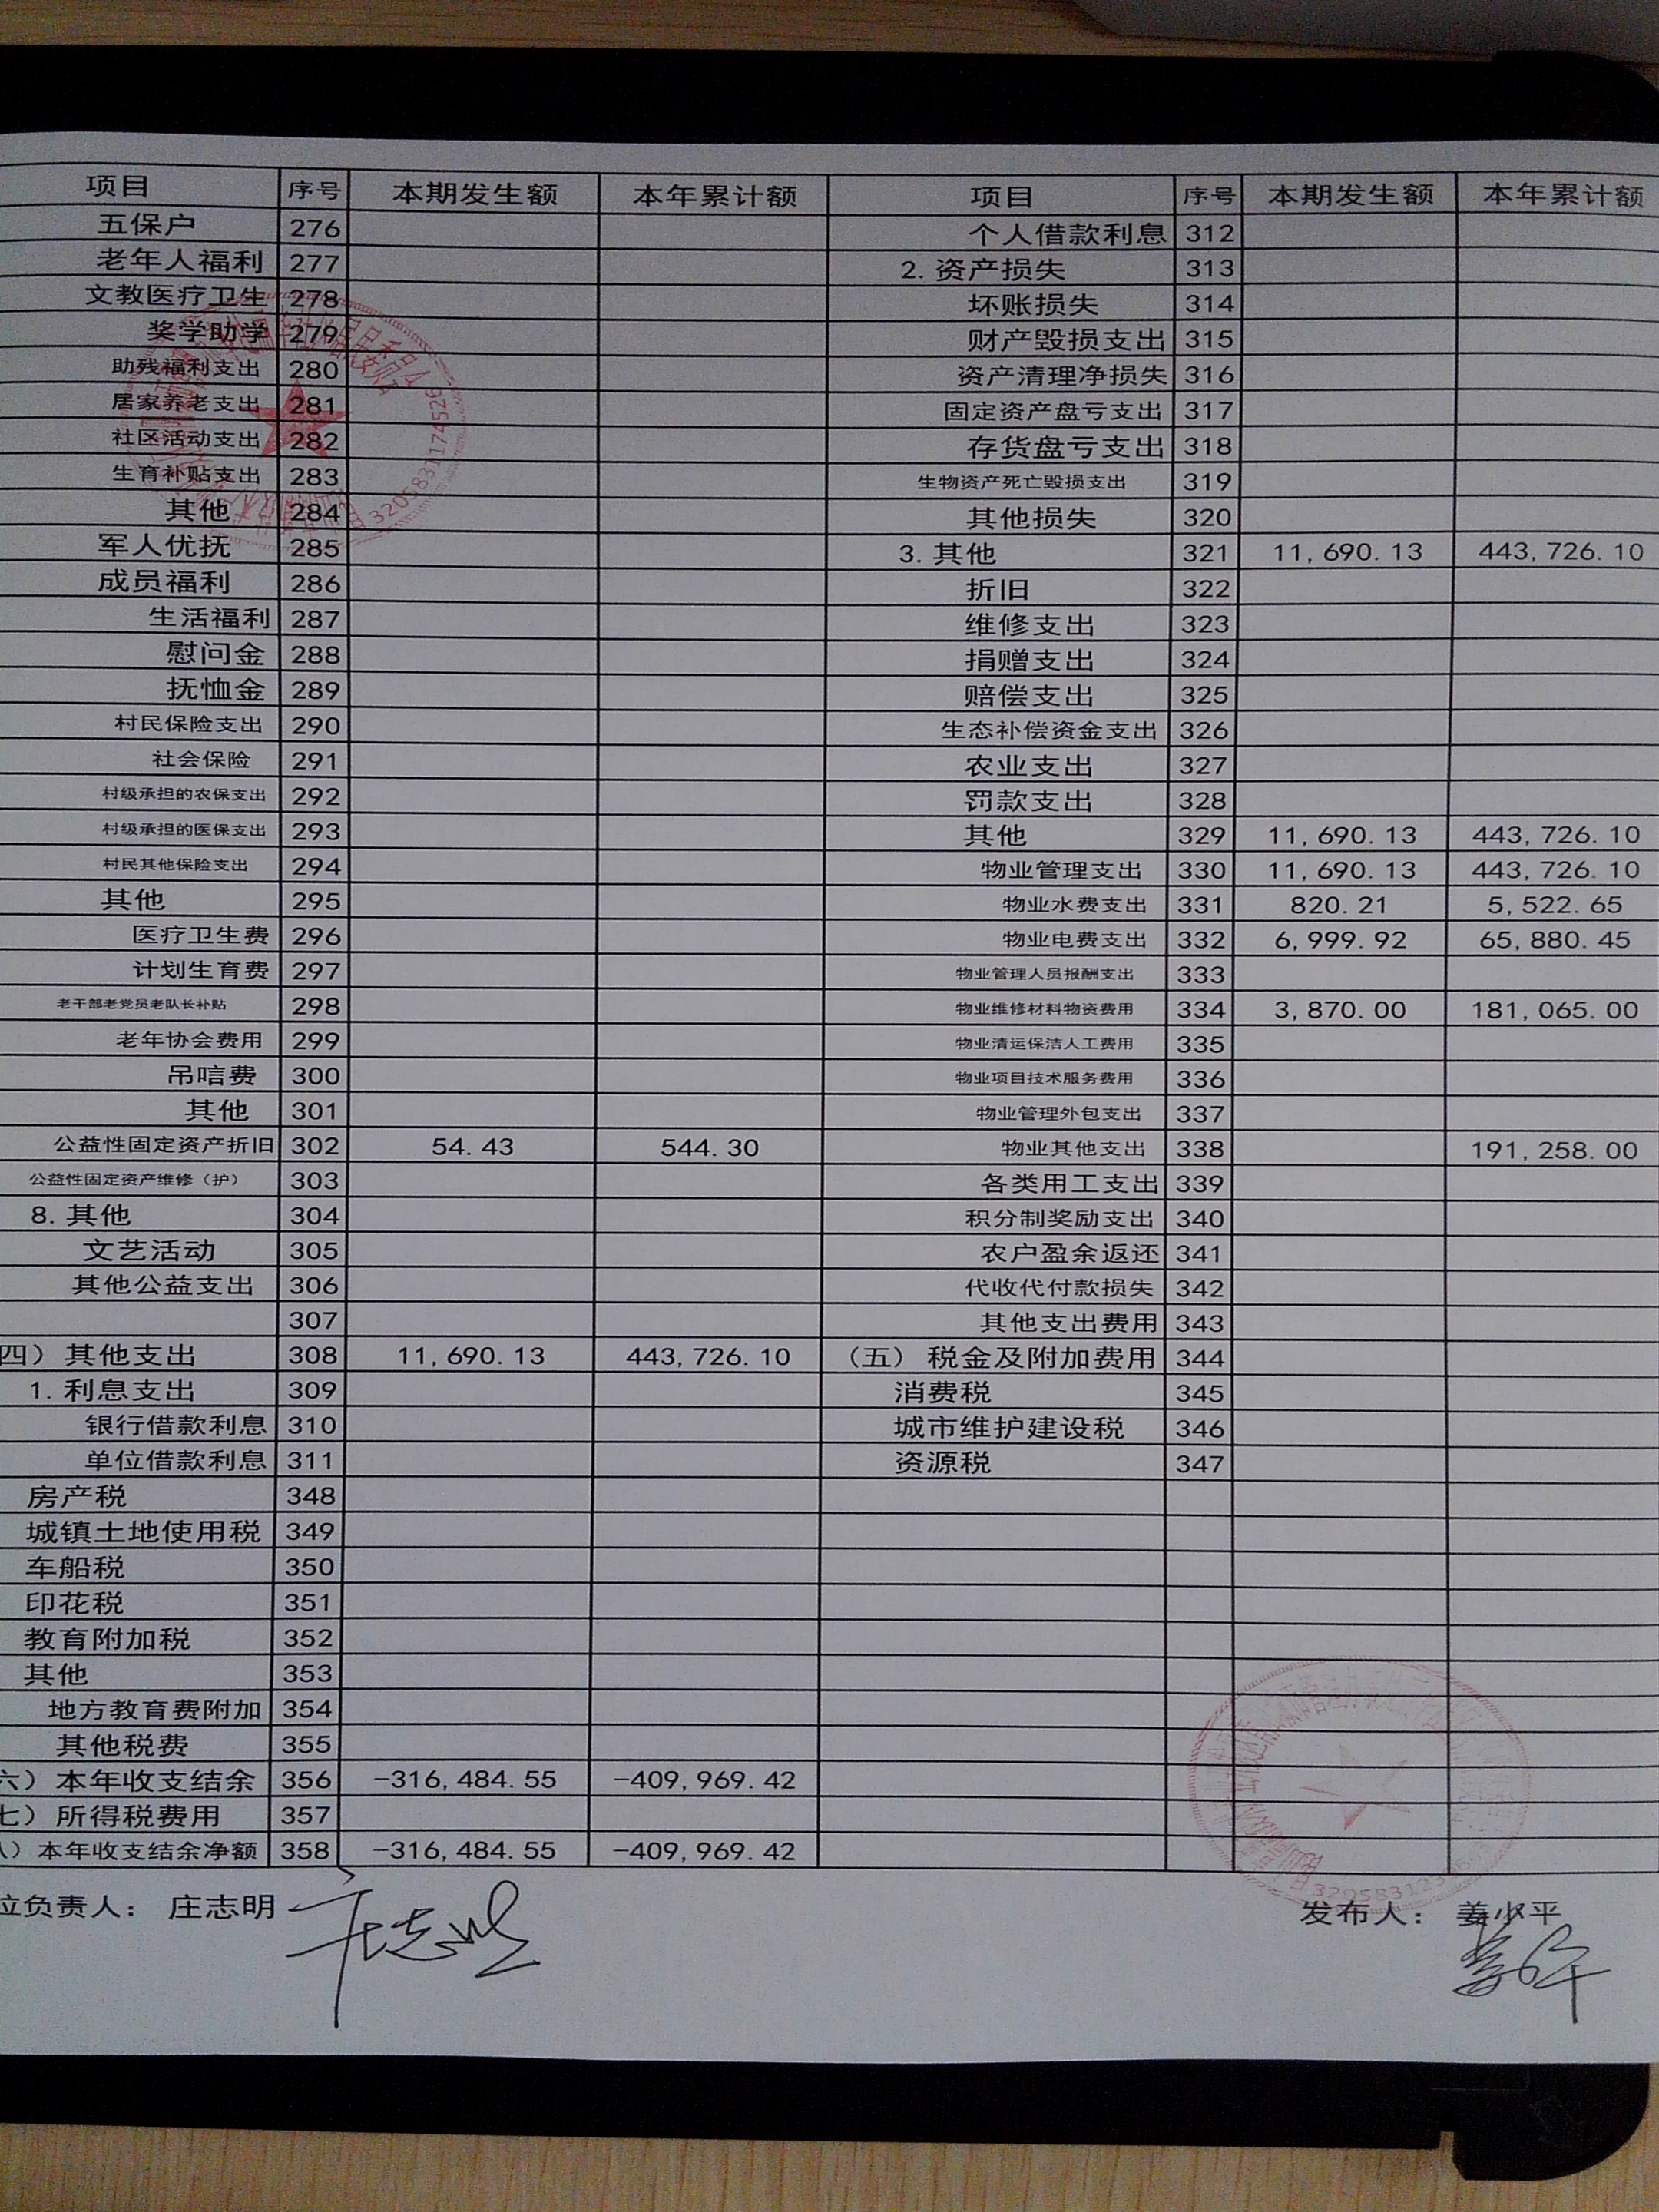 项目 序号 本期发生额 本年累计额 项目 序号 本期发生额 本年累计额
五保户 276 个人借款利息 312
老年人福利 277 2. 资产损失 313
文教医疗卫生 278 坏账损失 314
奖学助学 279 财产毁损支出 315
助残福利支出 280 资产清理净损失 316
居家养老支出 281 固定资产盘亏支出 317
社区活动支出 282 存货盘亏支出 318
生育补贴支出 283 生物资产死亡毁损支出 319
其他 284 其他损失 320
军人优抚 285 3. 其他 321 11,690.13 443,726.10
成员福利 286 折旧 322
生活福利 287 维修支出 323
慰问金 288 捐赠支出 324
抚恤金 289 赔偿支出 325
村民保险支出 290 生态补偿资金支出 326
社会保险 291 农业支出 327
村级承担的农保支出 292 罚款支出 328
村级承担的医保支出 293 其他 329 11,690.13 443,726.10
村民其他保险支出 294 物业管理支出 330 11,690.13 443,726.10
其他 295 物业水费支出 331 820.21 5,522.65
医疗卫生费 296 物业电费支出 332 6,999.92 65,880.45
计划生育费 297 物业管理人员报酬支出 333
老干部老党员老队长补贴 298 物业维修材料物资费用 334 3,870.00 181,065.00
老年协会费用 299 物业清运保洁人工费用 335
吊唁费 300 物业项目技术服务费用 336
其他 301 物业管理外包支出 337
公益性固定资产折旧 302 54.43 544.30 物业其他支出 338 191,258.00
公益性固定资产维修（护） 303 各类用工支出 339
8. 其他 304 积分制奖励支出 340
文艺活动 305 农户盈余返还 341
其他公益支出 306 代收代付款损失 342
307 其他支出费用 343
四）其他支出 308 11,690.13 443,726.10 （五）税金及附加费用 344
1. 利息支出 309 消费税 345
银行借款利息 310 城市维护建设税 346
单位借款利息 311 资源税 347
房产税 348
城镇土地使用税 349
车船税 350
印花税 351
教育附加税 352
其他 353
地方教育费附加 354
其他税费 355
六）本年收支结余 356 -316,484.55 -409,969.42
七）所得税费用 357
）本年收支结余净额 358 -316,484.55 -409,969.42
位负责人： 庄志明 庄志明 发布人： 姜少平
3205831174526